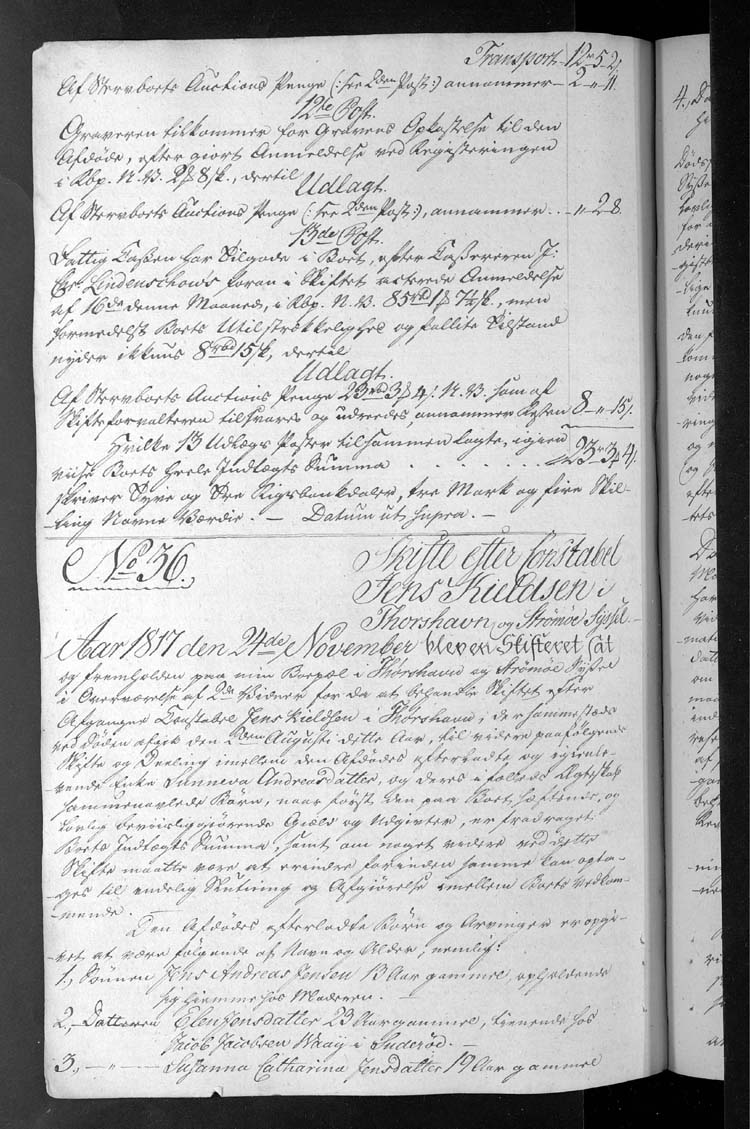 Transport - 12 rd 5 2.
Af Sterrboets Auctions Penge (: see 2den Post :) annammer - 2 - " - 11.
12te Post.
Graveren tilkommer for Gravens Opkastelse til den
Afdøde, efter giort Anmeldelse ved Registeringen
i Rbp. N. V. 2 ß 8 sk., dertil
Udlagt.
Af Sterrboets Auctions Penge (: see 2den Post :), annammer . . - " - 2 8.
13de Post.
Fattig Cassen har Tilgode i Boet, efter Casserernes J:
Chr. Lindenschows foran i Skiftet acterede Anmeldelse
af 16de denne Maaned, i Rbp. N. V. 85 rbd 1 ß 7½ sk., men
formedelst Boets Utilstrækkelighed og fallite Tilstand
nyder ikkuns 8 rbd 15 sk., dertil
Udlagt.
Af Sterrboets Auctions Penge 23 rbd 3 ß 4 s. N. V. som af
Skifteforvalteren tilsvares og udreedes, annammer Resten 8 - " - 15 s.
Hvilke 13 Udlægs Poster tilsammen lagte, igien
viise Boets heele Indtægts Summa . . . . . . . 23 rd 3 ß 4 s.
skriver Tyve og Tre Rigsbankdaler, tre Mark og fire Skil-
ling Navne Værdie. — Datum ut supra. —
No 36.
Skifte efter Constabel
Jens Kieldsen i
Thorshavn, og Strömöe Syssel.
Aar 1817 den 24de November bleven Skifteret sat
og fremholden paa min Boepæl i Thorshavn og Strömöe Syssel
i Overværelse af 2de Vidner for da at behandle Skiftet efter
Afgangne Constabel Jens Kieldsen i Thorshavn, der sammesteds
ved Døden afgik den 2den Augusti dette Aar, til videre paafølgende
Skifte og Deeling imellem den Afdødes efterladte og igienle-
vende Enke Sunneva Andreasdatter, og deres i fælleds Ægteskab
sammenavlede Børn, naar først den paa Boet hæftende, og
lovlig beviisliggiørende Giæld og Udgivter, er fradraget
Boets Indtægts Summa, samt om noget videre ved dette
Skifte maatte være at erindre forinden samme kan optа-
ges til endelig Slutning og Afgiørelse imellem Boets Vedkom-
mende.
Den Afdødes efterladte Børn og Arvinger er opgi-
vet at være følgende af Navn og Alder, nemlig:
1., Sønnen Jens Andreas Jensen 13 Aar gammel, opholdende
sig hiemme hos Moderen. —
2., Datteren Elen Jensdatter 23 Aar gammel, tienende hos
Jacob Jacobsen Waag i Suderöe. —
3., — " — Susanna Catharina Jensdatter 19 Aar gammel